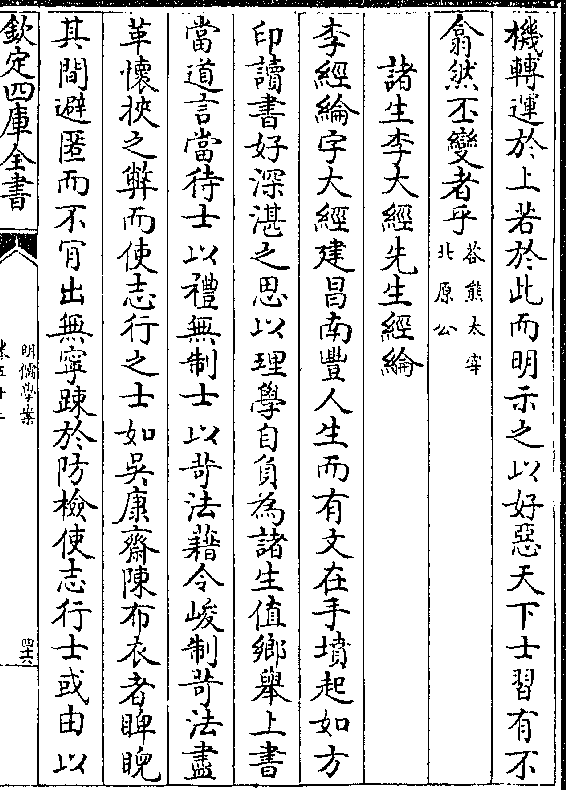 機轉運於上若於此而明示之以好惡天下士習有不
翕然丕變者乎答熊太宰
北原公
諸生李大經先生經綸
李經綸字大經建昌南豐人生而有文在手墳起如方
印讀書好深湛之思以理學自負為諸生值鄉舉上書
當道言當待士以禮無制士以苛法藉令峻制苛法盡
革懷挾之弊而使志行之士如吳康齋陳布衣者睥睨
其間避匿而不肎出無寧踈於防檢使志行士或由以
欽定四庫全書
明儒學案
卷五十二
四六